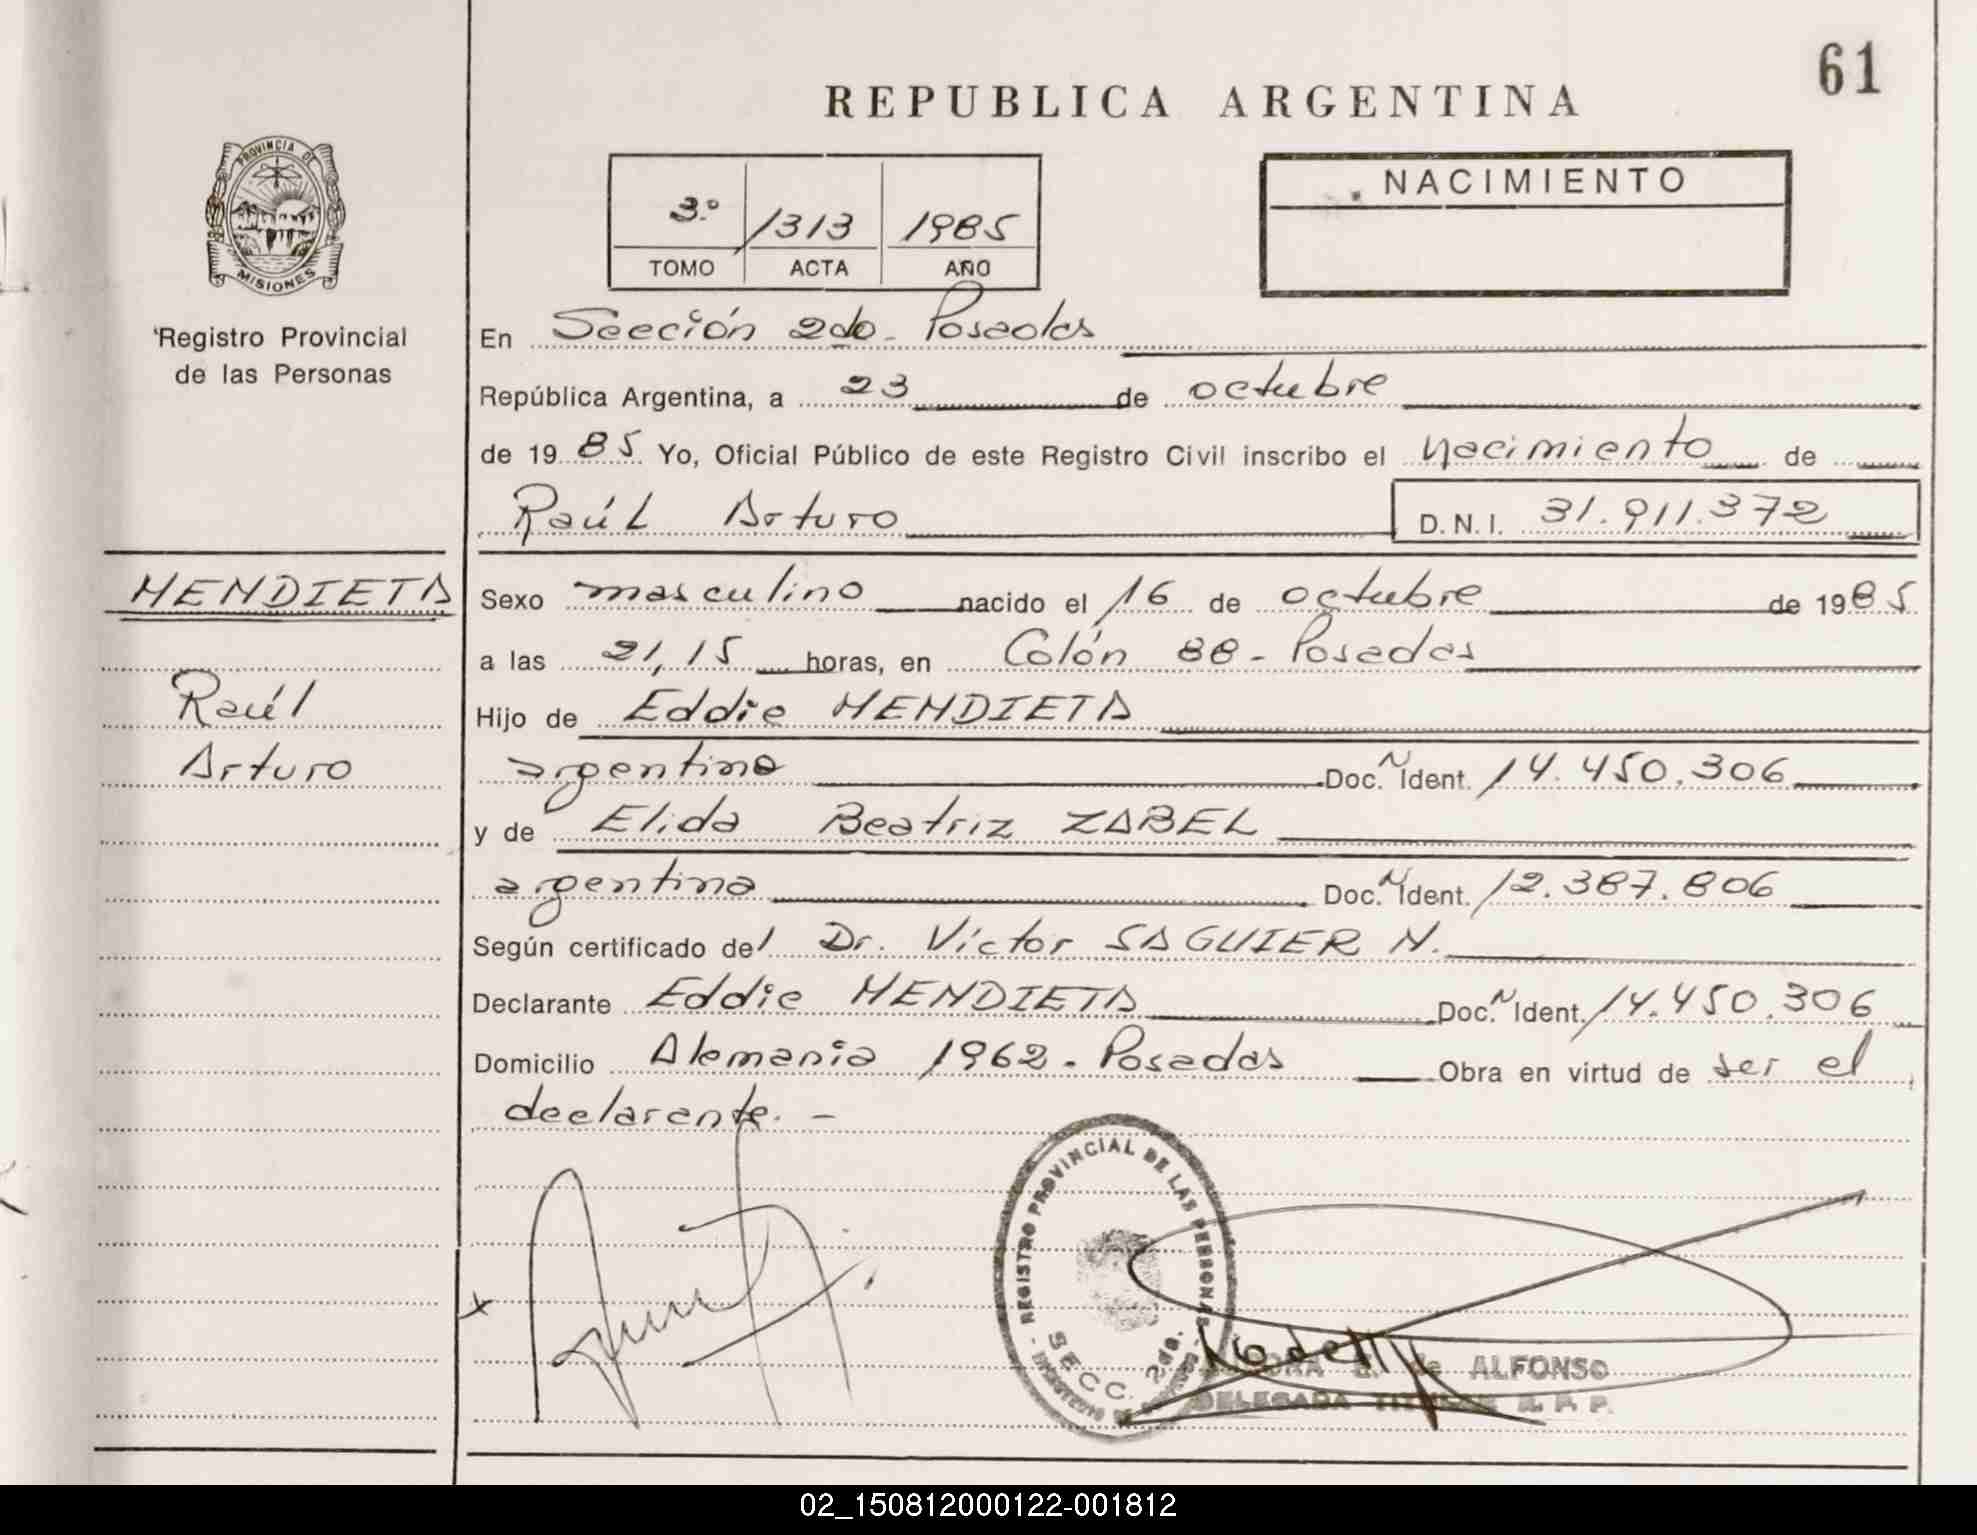 61
REPUBLICA ARGENTINA
PROVINCIA DE
MISIONES
3º 1313 1985
TOMO ACTA AÑO
NACIMIENTO
Registro Provincial
de las Personas
En Sección 2do. Posadas
República Argentina, a 23 de octubre
de 1985 Yo, Oficial Público de este Registro Civil inscribo el nacimiento de
Raúl Arturo D.N.I. 31.911.372
MENDIETA
Raúl
Arturo
Sexo masculino nacido el 16 de octubre de 1985
a las 21,15 horas, en Colón 88 - Posadas
Hijo de Eddie MENDIETA
argentino Doc. N Ident. 14.450.306
y de Elida Beatriz ZABEL
argentina Doc. N Ident. 12.387.806
Según certificado del Dr. Víctor SAGUIER N.
Declarante Eddie MENDIETA Doc. N Ident. 14.450.306
Domicilio Alemania 1962 - Posadas Obra en virtud de ser el
declarante. -
REGISTRO PROVINCIAL DE LAS PERSONAS
SECC. 2da.
de ALFONSO
DELEGADA TITULAR R. P. P.
02_150812000122-001812